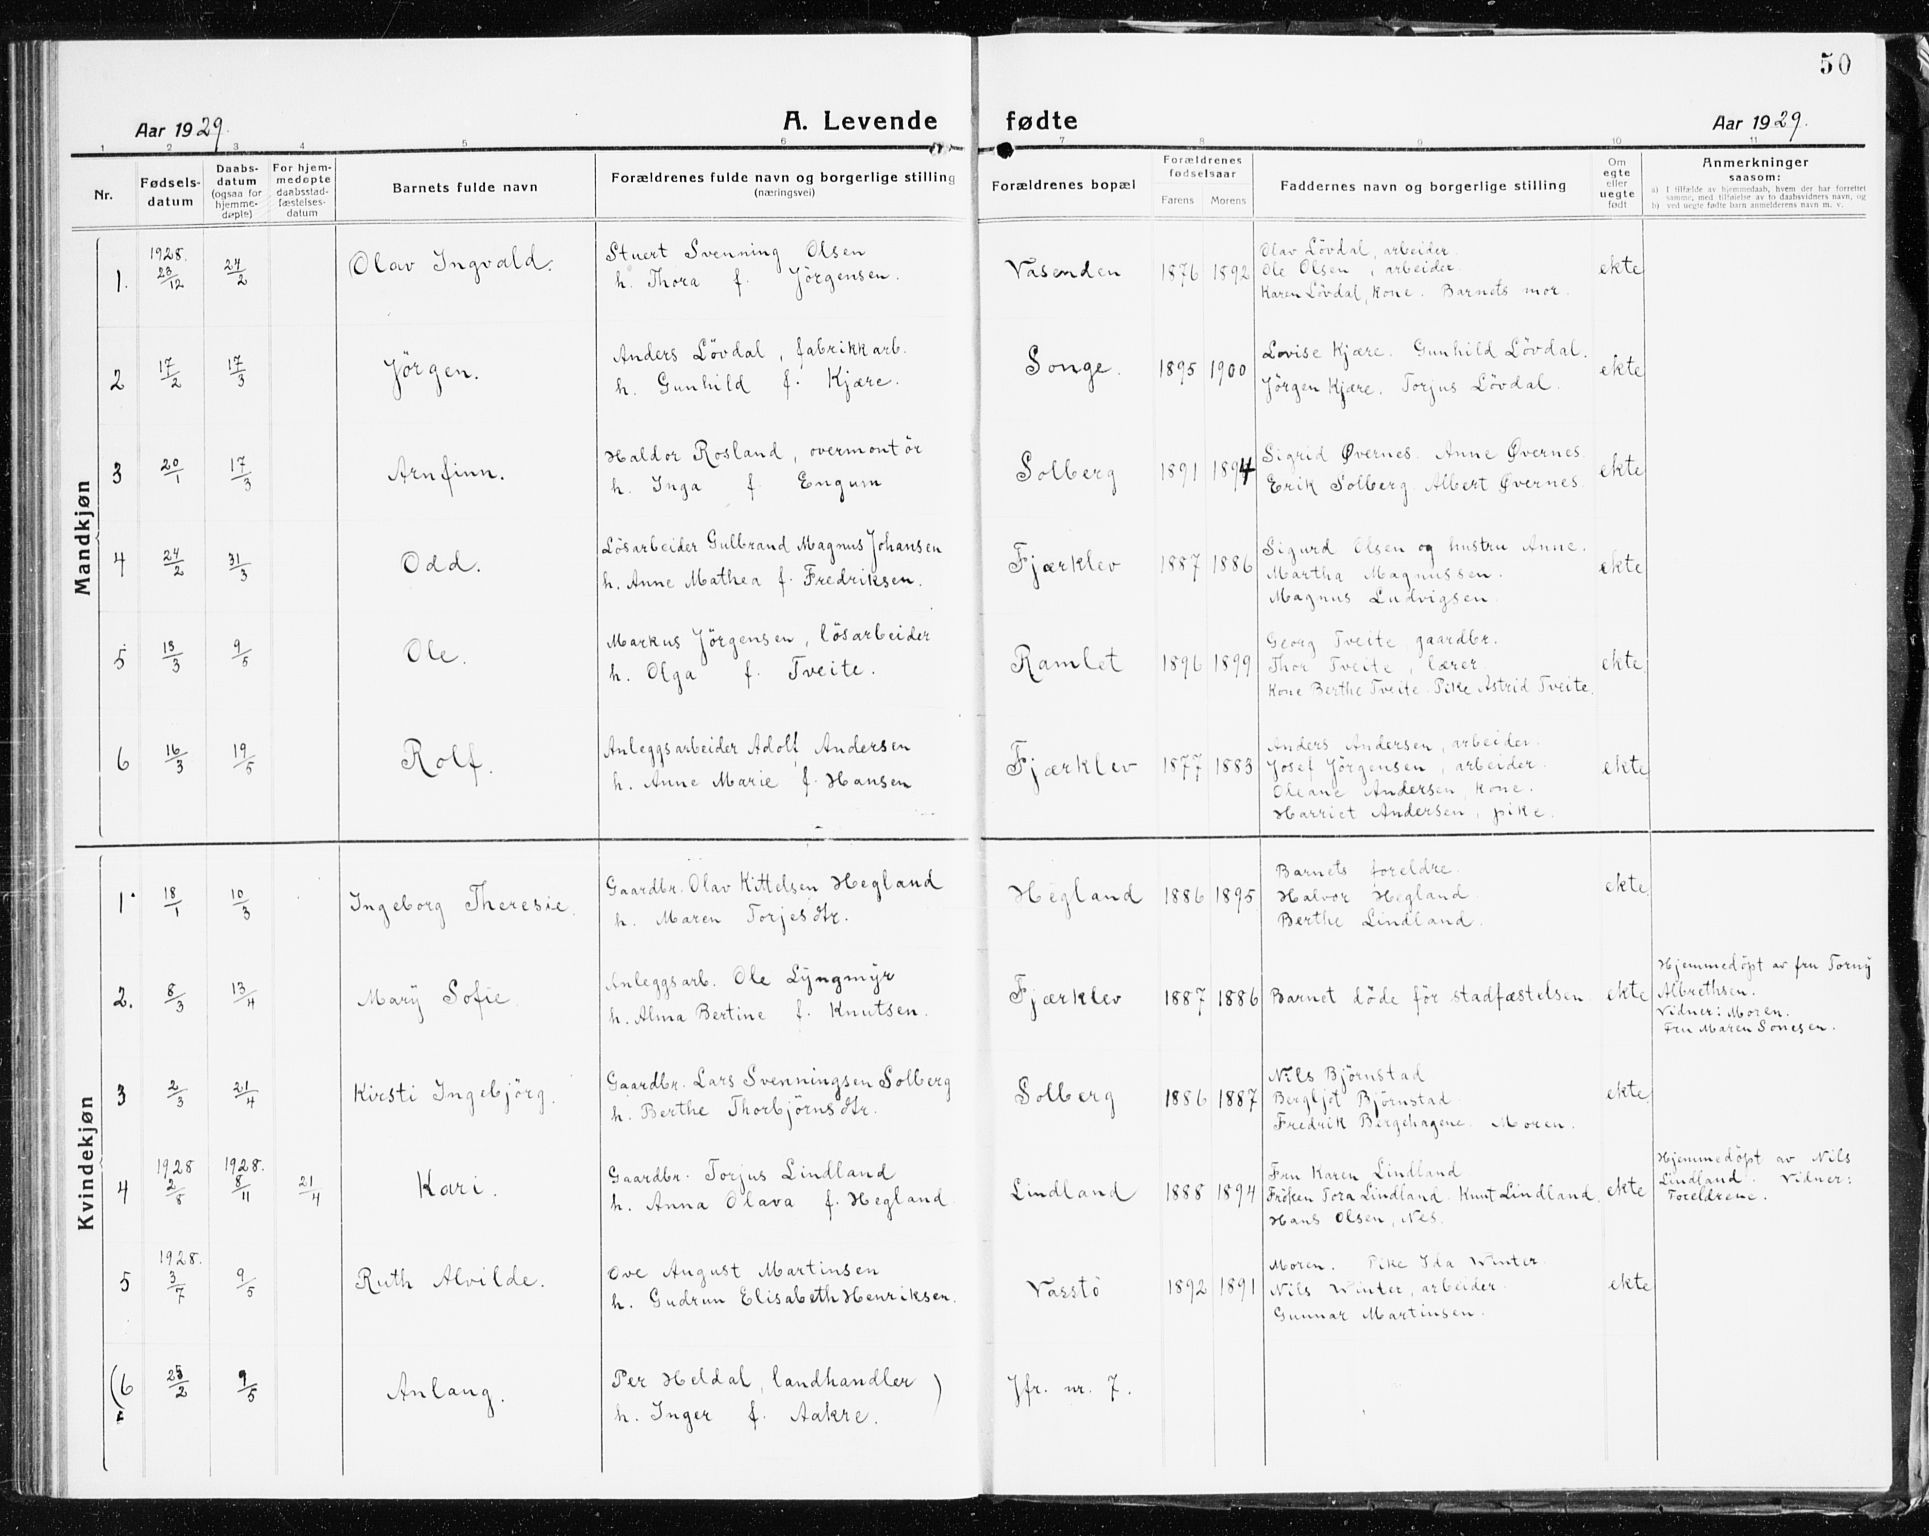 50
Aar 1929.
A. Levende fødte
Aar 1929.
1 2 3 4 5 6 7 8 9 10 11
Nr.
Fødsels-
datum
Daabs-
datum
(ogsaa for
hjemme-
døpte)
For hjem-
medøpte
daabsstad-
fæstelses-
datum
Barnets fulde navn
Forældrenes fulde navn og borgerlige stilling
(næringsvei)
Forældrenes bopæl
Forældrenes
fødselsaar
Farens Morens
Faddernes navn og borgerlige stilling
Om
egte
eller
uegte
født
Anmerkninger
saasom:
a) I tilfælde av hjemmedaab, hvem der har forrettet
samme, med tilføielse av to daabsvidners navn, og
b) ved uegte fødte barn anmelderens navn m. v.
Mandkjøn
1. 1928. 23/12 24/2 Olav Ingvald.
Stuert Svenning Olsen
h. Thora f. Jörgensen.
Vasenden 1876 1892
Olav Lövdal, arbeider.
Ole Olsen, arbeider.
Karen Lövdal, kone. Barnets mor.
ekte
2 17/2 17/3 Jörgen.
Anders Lövdal, fabrikkarb.
h. Gunhild f. Kjære.
Songe. 1895 1900
Lovise Kjære. Gunhild Lövdal.
Jörgen Kjære. Torjus Lövdal.
ekte
3 20/1 17/3 Arnfinn.
Haldor Rosland, overmontör
h. Inga f. Engum
Solberg 1891 1894
Sigrid Øvernes. Anne Øvernes.
Erik Solberg. Albert Øvernes.
ekte
4 24/2 31/3 Odd.
Lösarbeider Gulbrand Magnus Johansen
h. Anne Mathea f. Fredriksen.
Fjærklev 1887 1886
Sigurd Olsen og hustru Anne.
Martha Magnussen.
Magnus Ludvigsen.
ekte
5 13/3 9/5 Ole.
Markus Jörgensen, lösarbeider
h. Olga f. Tveite.
Ramlet 1896 1899
Georg Tveite, gaardbr.
Thor Tveite, lærer.
Kone Berthe Tveite. Pike Astrid Tveite.
ekte.
6 16/3 19/5 Rolf.
Anleggsarbeider Adolf Andersen
h. Anne Marie f. Hansen
Fjærklev 1877 1883
Anders Andersen, arbeider.
Josef Jörgensen, arbeider.
Oleane Andersen, kone.
Harriet Andersen, pike.
ekte
Kvindekjøn
1. 18/1 10/3 Ingeborg Theresie.
Gaardbr. Olav Kittelsen Hegland
h. Maren Torjesdtr.
Hegland 1886 1895
Barnets foreldre.
Halvor Hegland.
Berthe Lindland.
ekte
2. 8/3 13/4 Mary Sofie.
Anleggsarb. Ole Lyngmyr
h. Alma Bertine f. Knutsen.
Fjærklev 1887 1886
Barnet döde för stadfæstelsen.
ekte
Hjemmedöpt av fru Torny
Albrethsen.
Vidner: Moren.
Fru Maren Sonesen.
3 2/3 21/4 Kirsti Ingebjörg.
Gaardbr. Lars Svenningsen Solberg
h. Berthe Thorbjörnsdtr.
Solberg 1886 1887
Nils Björnstad
Bergljot Björnstad.
Fredrik Bergehagene. Moren.
ekte
4 1928 2/8 1928. 8/11 21/4 Kari.
Gaardbr. Torjus Lindland
h. Anna Olava f. Hegland.
Lindland 1888 1894
Fru Karen Lindland
Fröken Tora Lindland. Knut Lindland.
Hans Olsen, Nes.
ekte
Hjemmedöpt av Nils
Lindland. Vidner:
Foreldrene.
5 1928. 3/7 9/5 Ruth Alvilde.
Ove August Martinsen
h. Gudrun Elisabeth Henriksen.
Vasstö 1892 1891
Moren. Pike Ida Winter.
Nils Winter, arbeider.
Gunnar Martinsen.
ekte
(6 25/2 9/5 Anlaug.
Per Heldal, landhandler )
h. Inger f. Aakre.
Jfr. nr. 7.